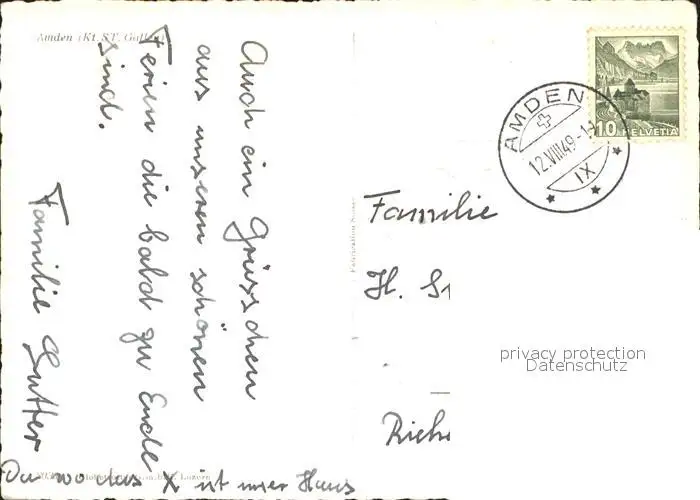 Amden (Kt. ST. Gallen)
Auch ein Grüsschen
aus unseren schönen
Ferien die bald zu Ende
sind.
Familie Sutter
Da wo das X ist unser Haus
Luzern
AMDEN
12.VIII.49-1
IX
10 HELVETIA
Familie
H.
privacy protection
Datenschutz